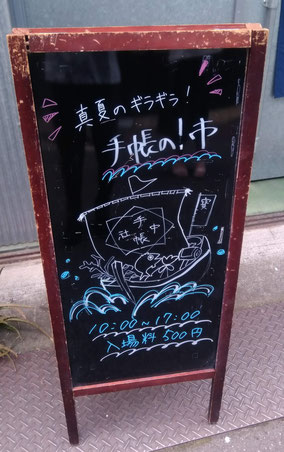 真夏のギラギラ！
手帳の！市
寳
手帳
社中
10:00～17:00
入場料500円